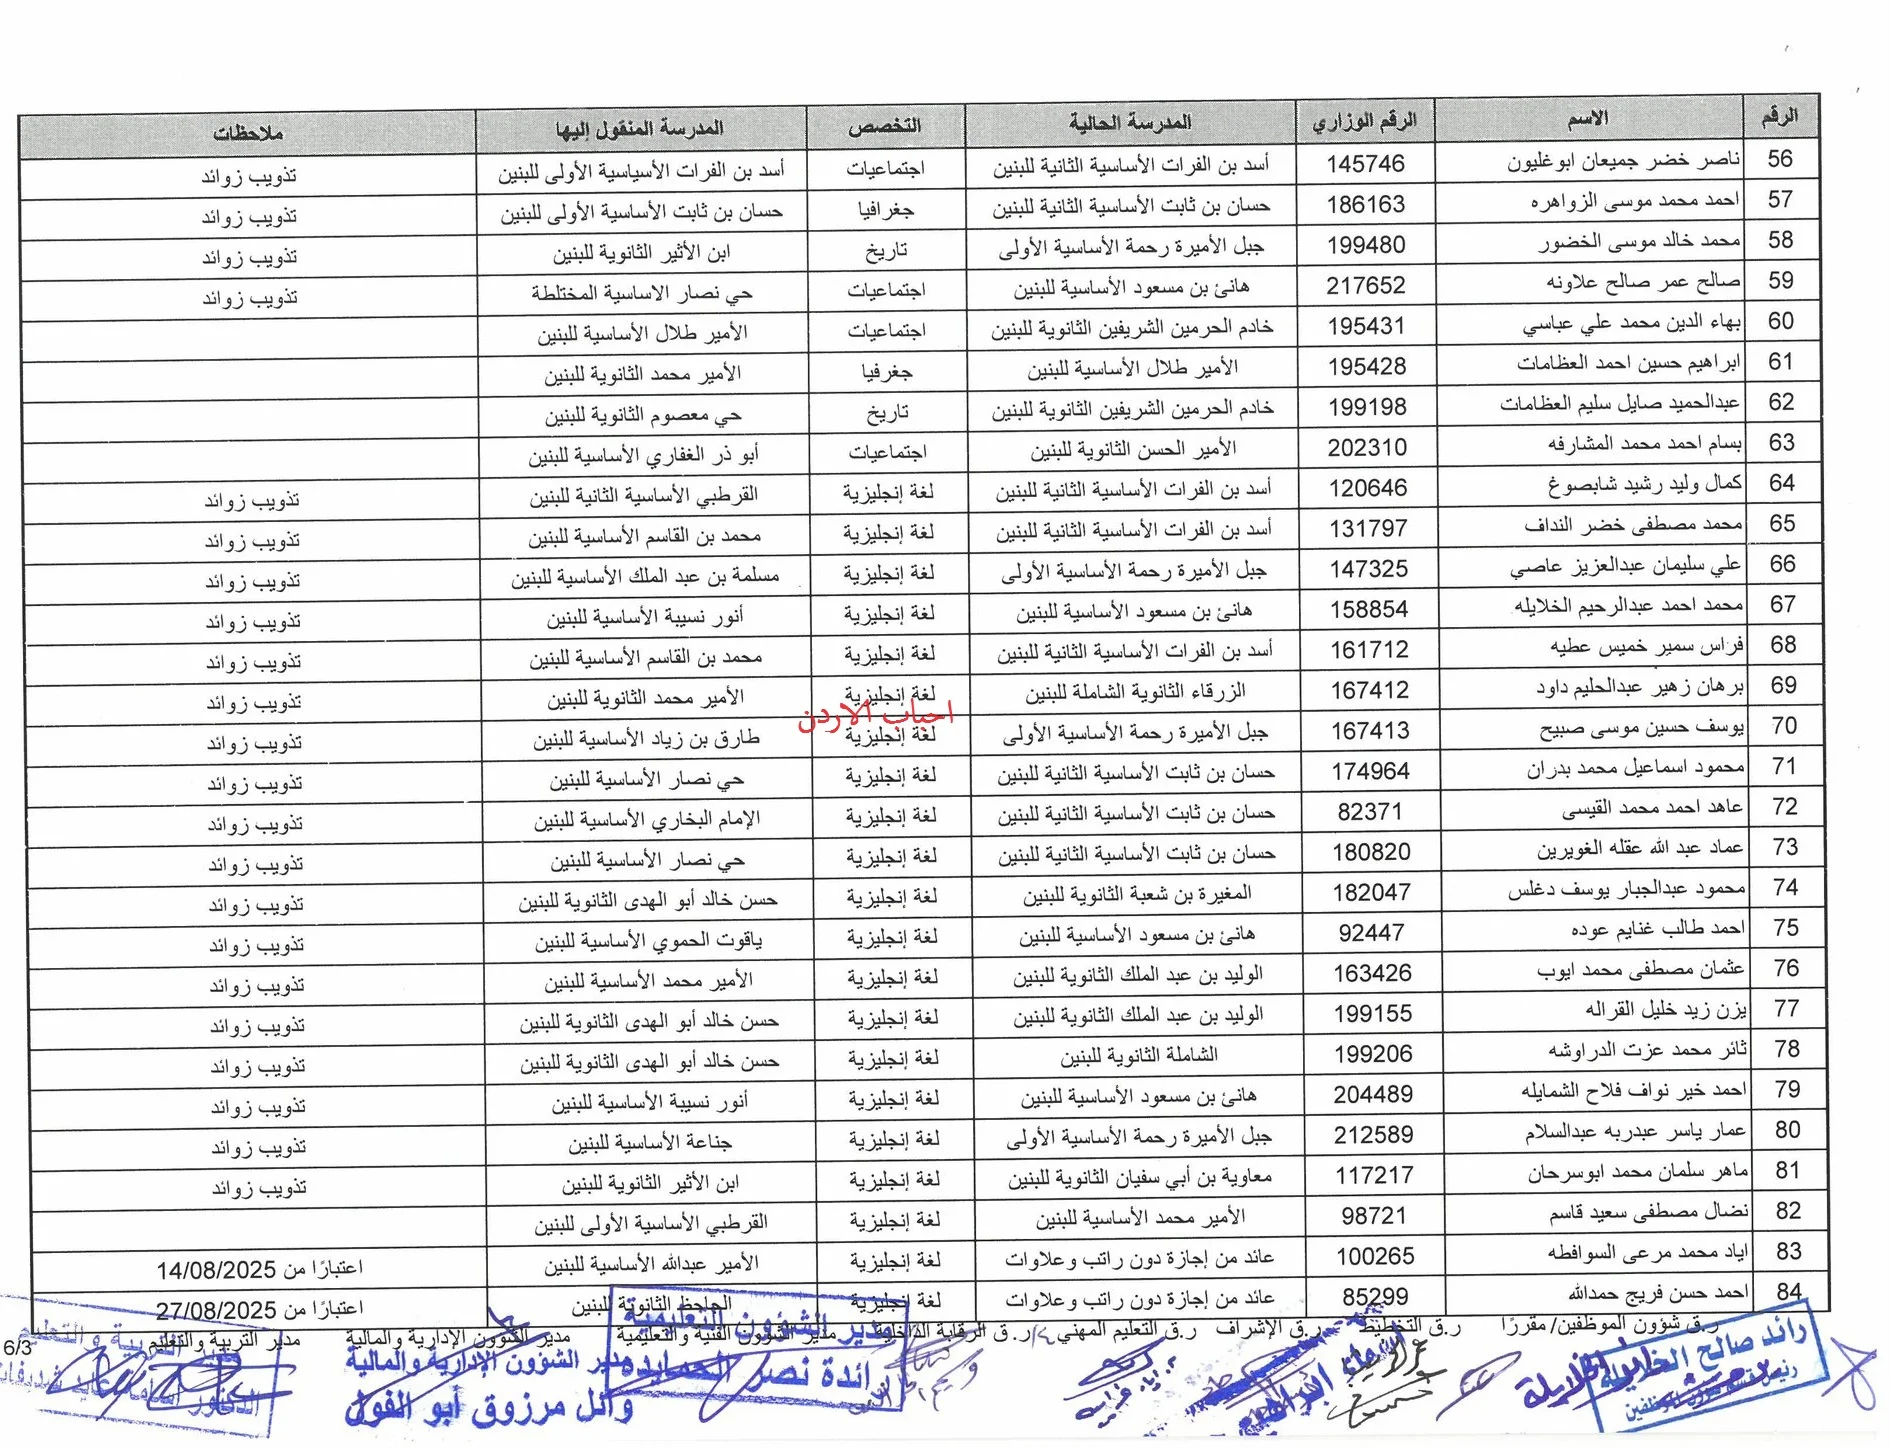 الرقم الاسم الرقم الوزاري المدرسة الحالية التخصص المدرسة المنقول إليها ملاحظات
56 ناصر خضر جميعان ابوغليون 145746 أسد بن الفرات الأساسية الثانية للبنين اجتماعيات أسد بن الفرات الأسياسية الأولى للبنين تذويب زوائد
57 احمد محمد موسى الزواهره 186163 حسان بن ثابت الأساسية الثانية للبنين جغرافيا حسان بن ثابت الأساسية الأولى للبنين تذويب زوائد
58 محمد خالد موسى الخضور 199480 جبل الأميرة رحمة الأساسية الأولى تاريخ ابن الأثير الثانوية للبنين تذويب زوائد
59 صالح عمر صالح علاونه 217652 هانئ بن مسعود الأساسية للبنين اجتماعيات حي نصار الاساسية المختلطة تذويب زوائد
60 بهاء الدين محمد علي عباسي 195431 خادم الحرمين الشريفين الثانوية للبنين اجتماعيات الأمير طلال الأساسية للبنين
61 ابراهيم حسين احمد العظامات 195428 الأمير طلال الأساسية للبنين جغرفيا الأمير محمد الثانوية للبنين
62 عبدالحميد صايل سليم العظامات 199198 خادم الحرمين الشريفين الثانوية للبنين تاريخ حي معصوم الثانوية للبنين
63 بسام احمد محمد المشارفه 202310 الأمير الحسن الثانوية للبنين اجتماعيات أبو ذر الغفاري الأساسية للبنين
64 كمال وليد رشيد شابصوغ 120646 أسد بن الفرات الأساسية الثانية للبنين لغة إنجليزية القرطبي الأساسية الثانية للبنين تذويب زوائد
65 محمد مصطفى خضر النداف 131797 أسد بن الفرات الأساسية الثانية للبنين لغة إنجليزية محمد بن القاسم الأساسية للبنين تذويب زوائد
66 علي سليمان عبدالعزيز عاصي 147325 جبل الأميرة رحمة الأساسية الأولى لغة إنجليزية مسلمة بن عبد الملك الأساسية للبنين تذويب زوائد
67 محمد احمد عبدالرحيم الخلايله 158854 هانئ بن مسعود الأساسية للبنين لغة إنجليزية أنور نسيبة الأساسية للبنين تذويب زوائد
68 فراس سمير خميس عطيه 161712 أسد بن الفرات الأساسية الثانية للبنين لغة إنجليزية محمد بن القاسم الأساسية للبنين تذويب زوائد
69 برهان زهير عبدالحليم داود 167412 الزرقاء الثانوية الشاملة للبنين لغة إنجليزية الأمير محمد الثانوية للبنين تذويب زوائد
احباب الاردن
70 يوسف حسين موسى صبيح 167413 جبل الأميرة رحمة الأساسية الأولى لغة إنجليزية طارق بن زياد الأساسية للبنين تذويب زوائد
71 محمود اسماعيل محمد بدران 174964 حسان بن ثابت الأساسية الثانية للبنين لغة إنجليزية حي نصار الأساسية للبنين تذويب زوائد
72 عاهد احمد محمد القيسى 82371 حسان بن ثابت الأساسية الثانية للبنين لغة إنجليزية الإمام البخاري الأساسية للبنين تذويب زوائد
73 عماد عبد الله عقله الغويرين 180820 حسان بن ثابت الأساسية الثانية للبنين لغة إنجليزية حي نصار الأساسية للبنين تذويب زوائد
74 محمود عبدالجبار يوسف دغلس 182047 المغيرة بن شعبة الثانوية للبنين لغة إنجليزية حسن خالد أبو الهدى الثانوية للبنين تذويب زوائد
75 احمد طالب غنايم عوده 92447 هانئ بن مسعود الأساسية للبنين لغة إنجليزية ياقوت الحموي الأساسية للبنين تذويب زوائد
76 عثمان مصطفى محمد ايوب 163426 الوليد بن عبد الملك الثانوية للبنين لغة إنجليزية الأمير محمد الأساسية للبنين تذويب زوائد
77 يزن زيد خليل القراله 199155 الوليد بن عبد الملك الثانوية للبنين لغة إنجليزية حسن خالد أبو الهدى الثانوية للبنين تذويب زوائد
78 ثائر محمد عزت الدراوشه 199206 الشاملة الثانوية للبنين لغة إنجليزية حسن خالد أبو الهدى الثانوية للبنين تذويب زوائد
79 احمد خير نواف فلاح الشمايله 204489 هانئ بن مسعود الأساسية للبنين لغة إنجليزية أنور نسيبة الأساسية للبنين تذويب زوائد
80 عمار ياسر عبدربه عبدالسلام 212589 جبل الأميرة رحمة الأساسية الأولى لغة إنجليزية جناعة الأساسية للبنين تذويب زوائد
81 ماهر سلمان محمد ابوسرحان 117217 معاوية بن أبي سفيان الثانوية للبنين لغة إنجليزية ابن الأثير الثانوية للبنين تذويب زوائد
82 نضال مصطفى سعيد قاسم 98721 الأمير محمد الأساسية للبنين لغة إنجليزية القرطبي الأساسية الأولى للبنين
83 اياد محمد مرعى السوافطه 100265 عائد من إجازة دون راتب وعلاوات لغة إنجليزية الأمير عبدالله الأساسية للبنين اعتبارًا من 14/08/2025
84 احمد حسن فريج حمدالله 85299 عائد من إجازة دون راتب وعلاوات لغة إنجليزية الجاحظ الثانوية للبنين اعتبارًا من 27/08/2025
ر.ق شؤون الموظفين/ مقررًا ر.ق التخطيط ر.ق الإشراف ر.ق التعليم المهني ر.ق الرقابة الداخلية مدير الشؤون الفنية والتعليمية مدير الشؤون الإدارية والمالية مدير التربية والتعليم 6/3
رائد صالح الخلايلة
مدير الشؤون التعليمية
رائدة نصر الحمايده
مدير الشؤون الإدارية والمالية
وائل مرزوق أبو الفول